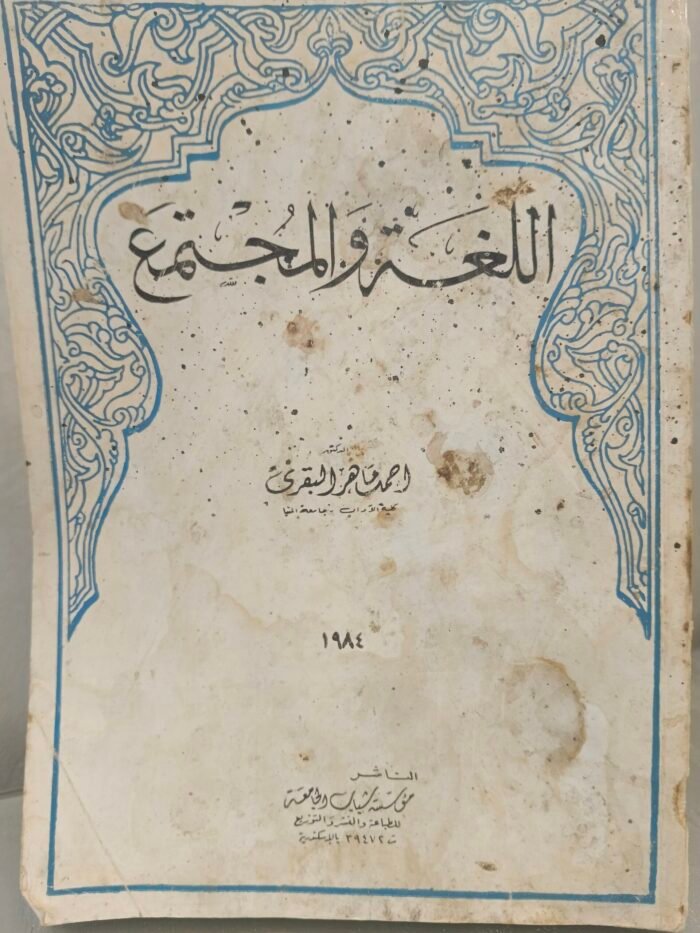 اللغة والمُجْتمَع
الدكتور
احمد ماهر البقرى
كلية الآداب - جامعة المنيا
١٩٨٤
الناشر
مؤسسة شباب الجامعة
للطباعة والنشر والتوزيع
ت ٣٩٤٧٢ بالإسكندرية